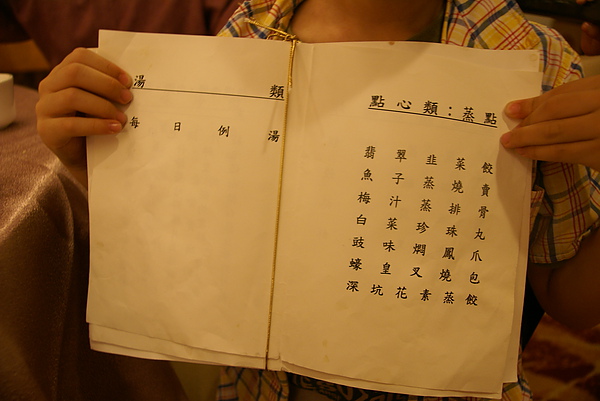 湯類
每日例湯
點心類：蒸點
翡翠韭菜餃
魚子蒸燒賣
梅汁蒸排骨
白菜珍珠丸
豉味燜鳳爪
蠔皇叉燒包
深坑花素蒸餃